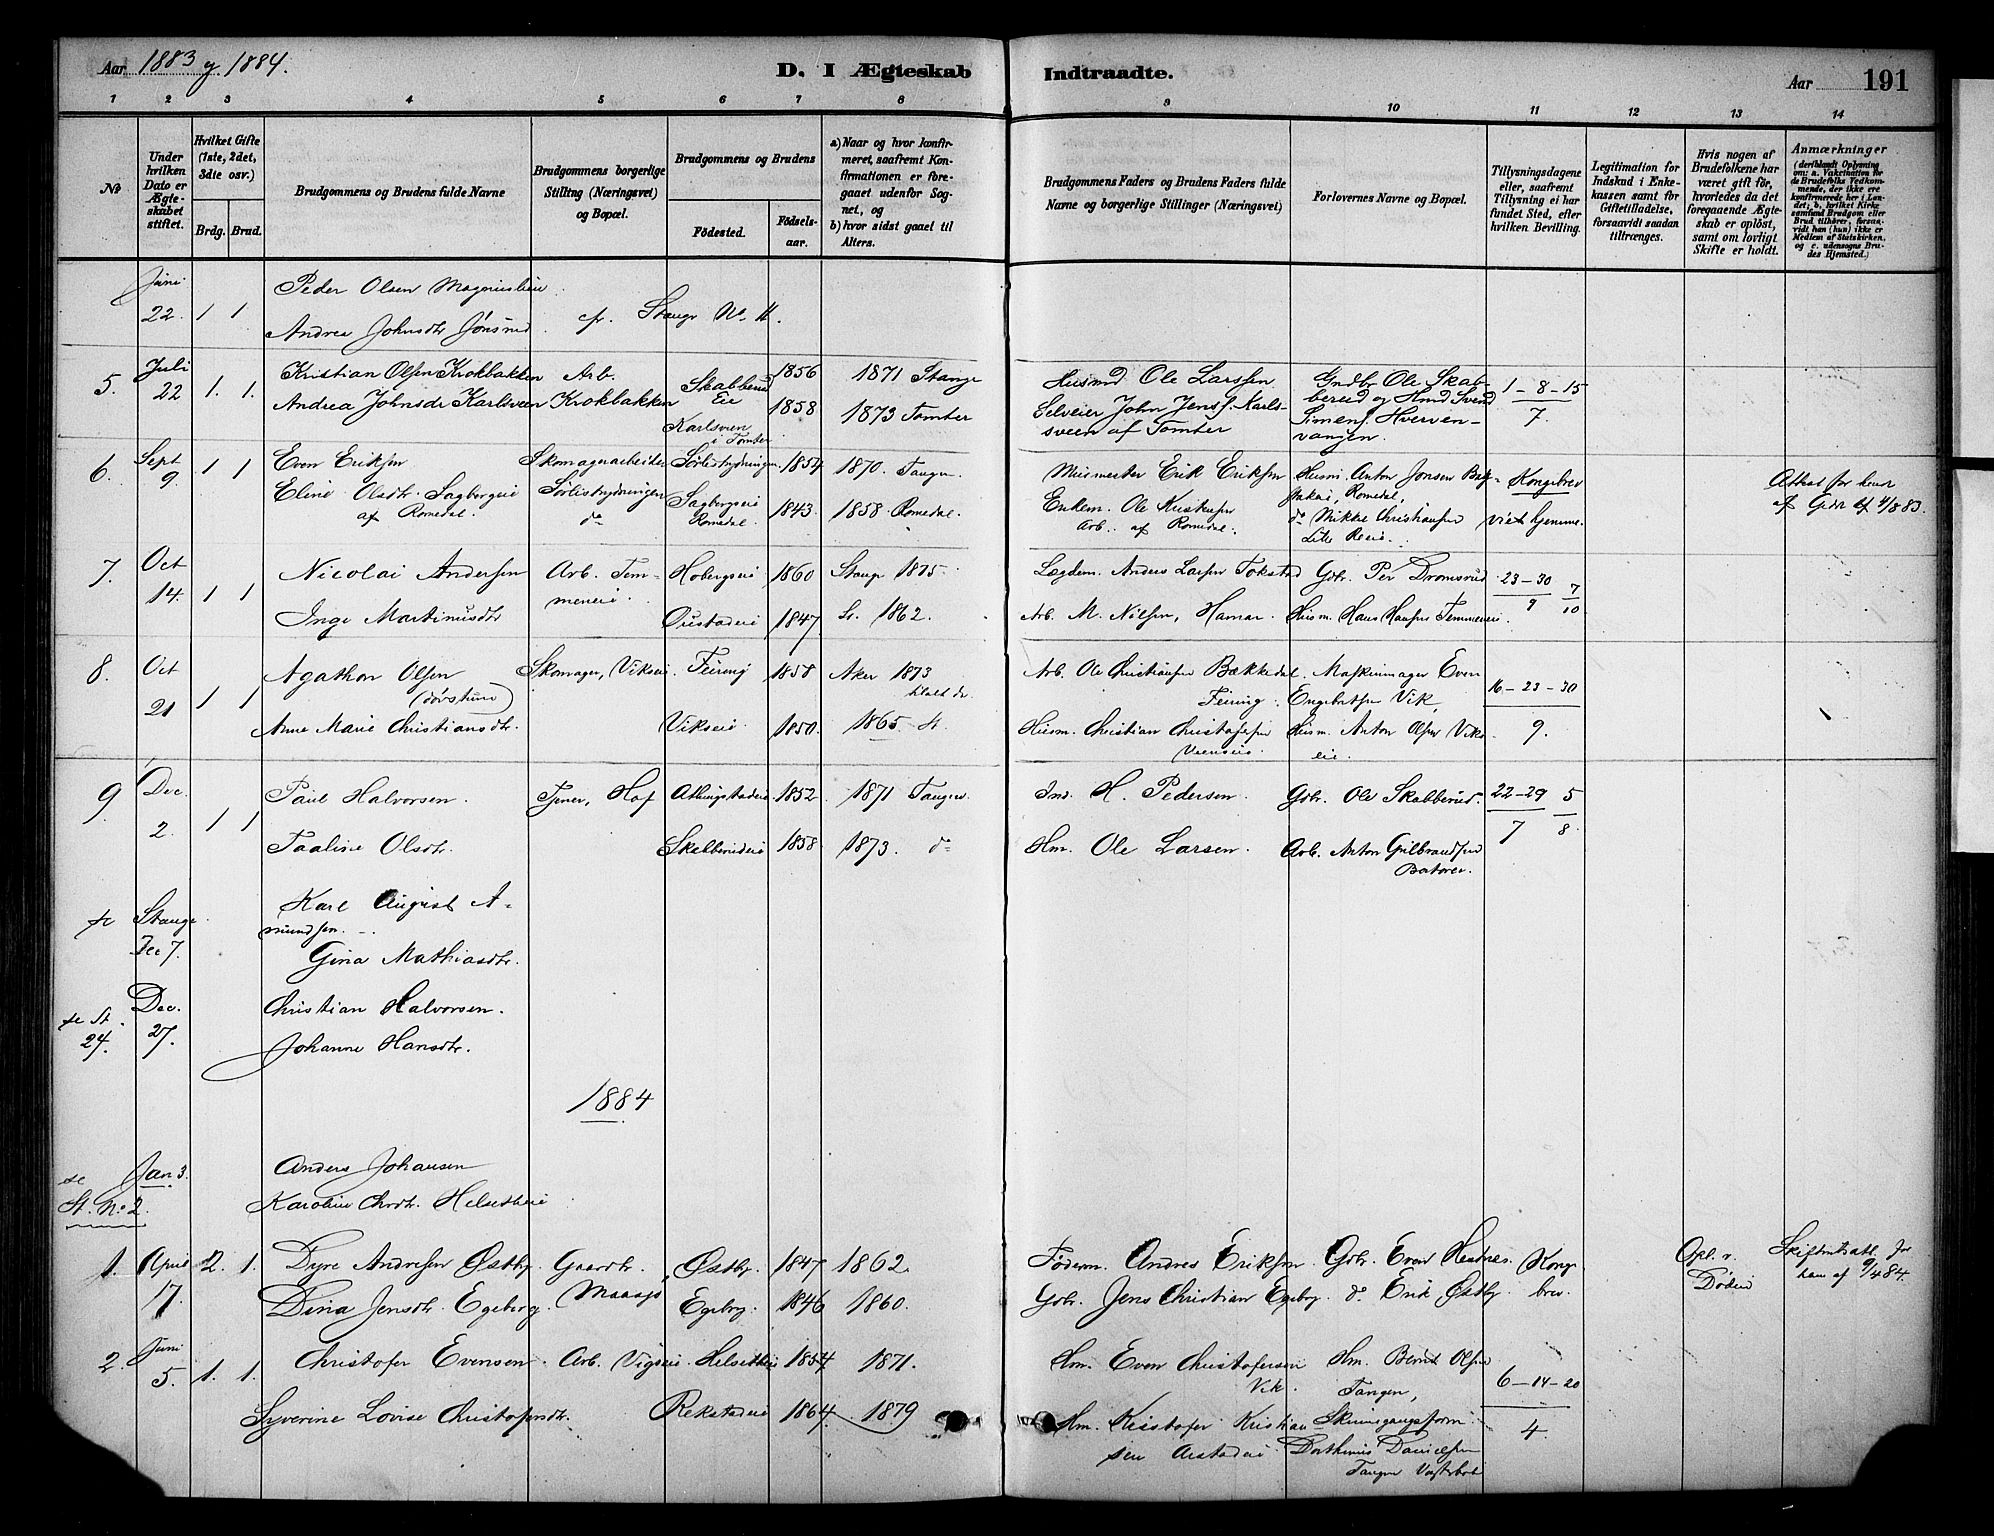 Aar 1883 g 1884.
D. I Ægteskab Indtraadte.
Aar 191
1 2 3 4 5 6 7 8 9 10 11 12 13 14
No
Under hvilken Dato er Ægteskabet stiftet.
Hvilket Gifte (1ste, 2det, 3die osv.)
Brdg. Brud.
Brudgommens og Brudens fulde Navne
Brudgommens borgerlige Stilling (Næringsvei) og Bopæl.
Brudgommens og Brudens
Födested. Födselsaar.
a) Naar og hvor konfirmeret, saafremt Konfirmationen er foregaaet udenfor Sognet, og
b) hvor sidst gaaet til Alters.
Brudgommens Faders og Brudens Faders fulde Navne og borgerlige Stillinger (Næringsvei)
Forlovernes Navne og Bopæl.
Tillysningsdagene eller, saafremt Tillysning ei har fundet Sted, efter hvilken Bevilling.
Legitimation for Indskud i Enkekassen samt for Giftetilladelse, forsaavidt saadan tiltrænges.
Hvis nogen af Brudefolkene har været gift för, hvorledes da det foregaaende Ægteskab er oplöst, samt om lovligt Skifte er holdt.
Anmærkninger
(deriblandt Oplysning om: a. Vakcination for de Brudefolks Vedkommende, der ikke ere konfirmerede her i Landet; b. hvilket Kirkesamfund Brudgom eller Brud tilhörer, forsaavidt han (hun) ikke er Medlem af Statskirken, og c. udensogns Brudes Hjemsted.)
Juni 22. 1 1 Peder Olsen
Andrea Johnsdtr Jönsrud cfr. Stange No. 11.
5. Juli 22 1. 1. Kristian Olsen Krokbakken Arb. Krokbakken Skabberud Eie 1856 1871 Stange
Andrea Johnsdr Karlsveen Karlsveen i Tomter 1858 1873 Tomter
Husmd Ole Larssen
Selveier John Jens. Karlssveen af Tomter
Gndbr Ole Skabberud og Hmd Svend Simens. Hvervenvangen.
1-8-15
7.
6. Sept 9 1 1 Even Eriksen Skomagerarbeider 1854 1870. Tangen
Eline Olsdtr. Sagbergeie af Romedal. do Sagbergseie Romedal. 1843. 1858. Romedal.
Murmester Erik Eriksen
Enkem. Ole
Arb. af Romedal.
Husm. Anton Jonsen
Romedal,
do Mikkel Christiansen
Kongebrev
viet hjemme.
Attest for
af 4/8 83.
7. Oct 14. 1 1 Nicolai Andersen Arb. Temmeneie. Hobergseie 1860 Stange 1875.
Inge Martinusdtr 1847 St. 1862.
Lægdem. Anders Larsen Tokstad Gdbr. Per Dromsrud 23-30 7
Arb. M. Nilsen, Hamar. Husm. Hans Hansen Temmeneie. 9 10
8. Oct 21 1 1 Agathon Olsen Skomager, Vikseie Feiring 1858 Aker 1873
Anne Marie Christiansdtr. Vikseie 1850. 1865. St.
Arb. Ole Christiansen Bækkedal Feiring. Maskinmager Even Engebretsen Vik, 16-23-30
Husm. Christian Christofersen Husm. Anton Olsen Vikseie. 9.
9 Dec. 2. 1 1 Paul Halvorsen. Tjener, Hof 1852. 1871 Tangen
Taaline Olsdtr. Skabberudeie 1858. 1873. do
Ind. H. Pedersen. Gdbr. Ole Skabberud. 22-29 5
Hm. Ole Larsen. Arb. Anton Gulbrandsen 7 8.
fr Stange Dec 7. Karl August Amundsen.
Gina Mathiasdtr.
fr St. 24. Dec. 27. Christian Halvorsen.
Johanne Hansdtr.
1884
fr St. No 2. Jan 3. Anders Johansen
Karoline Chrdtr. Helsetheie
1. April 17. 2. 1. Dyre Andresen Østby. Gaardbr. Østby. 1847 1862.
Dina Jensdtr. Egeberg. Maasjö Egeberg. 1846 1860.
Föderm. Andres Eriksen Gdbr. Even Hestnæs. Kongebrev.
Gdbr. Jens Christian Egeberg. do Erik Østby.
Opl. v. Döden
Skifteattest for ham af 9/4 84.
2. Juni 5. 1. 1. Christofer Evensen. Arb. Vigseie Helsetheie 1854 1871.
Syverine Lovise Christofersdtr. Rekstadeie 1864 1879
Hm. Even Christofersen Vik. Hm. Bernt Olsen Tangen, 6-14-20
Hm. Kristofer Kristiansen
Dorthenius Danielsen
Tangen
4.